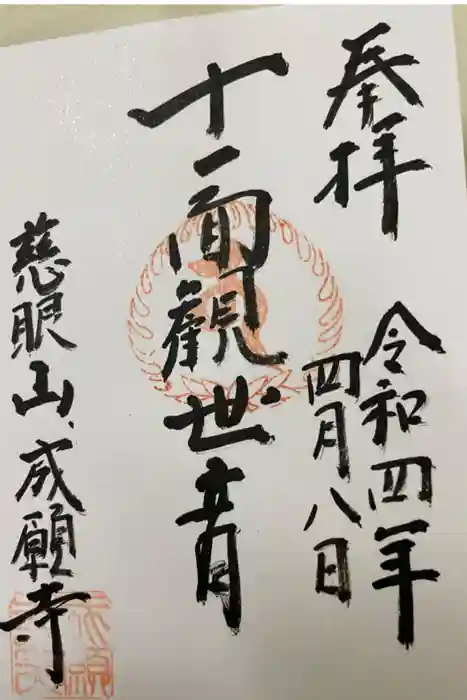 奉拝
令和四年
四月八日
十一面観世音
慈眼山、成願寺